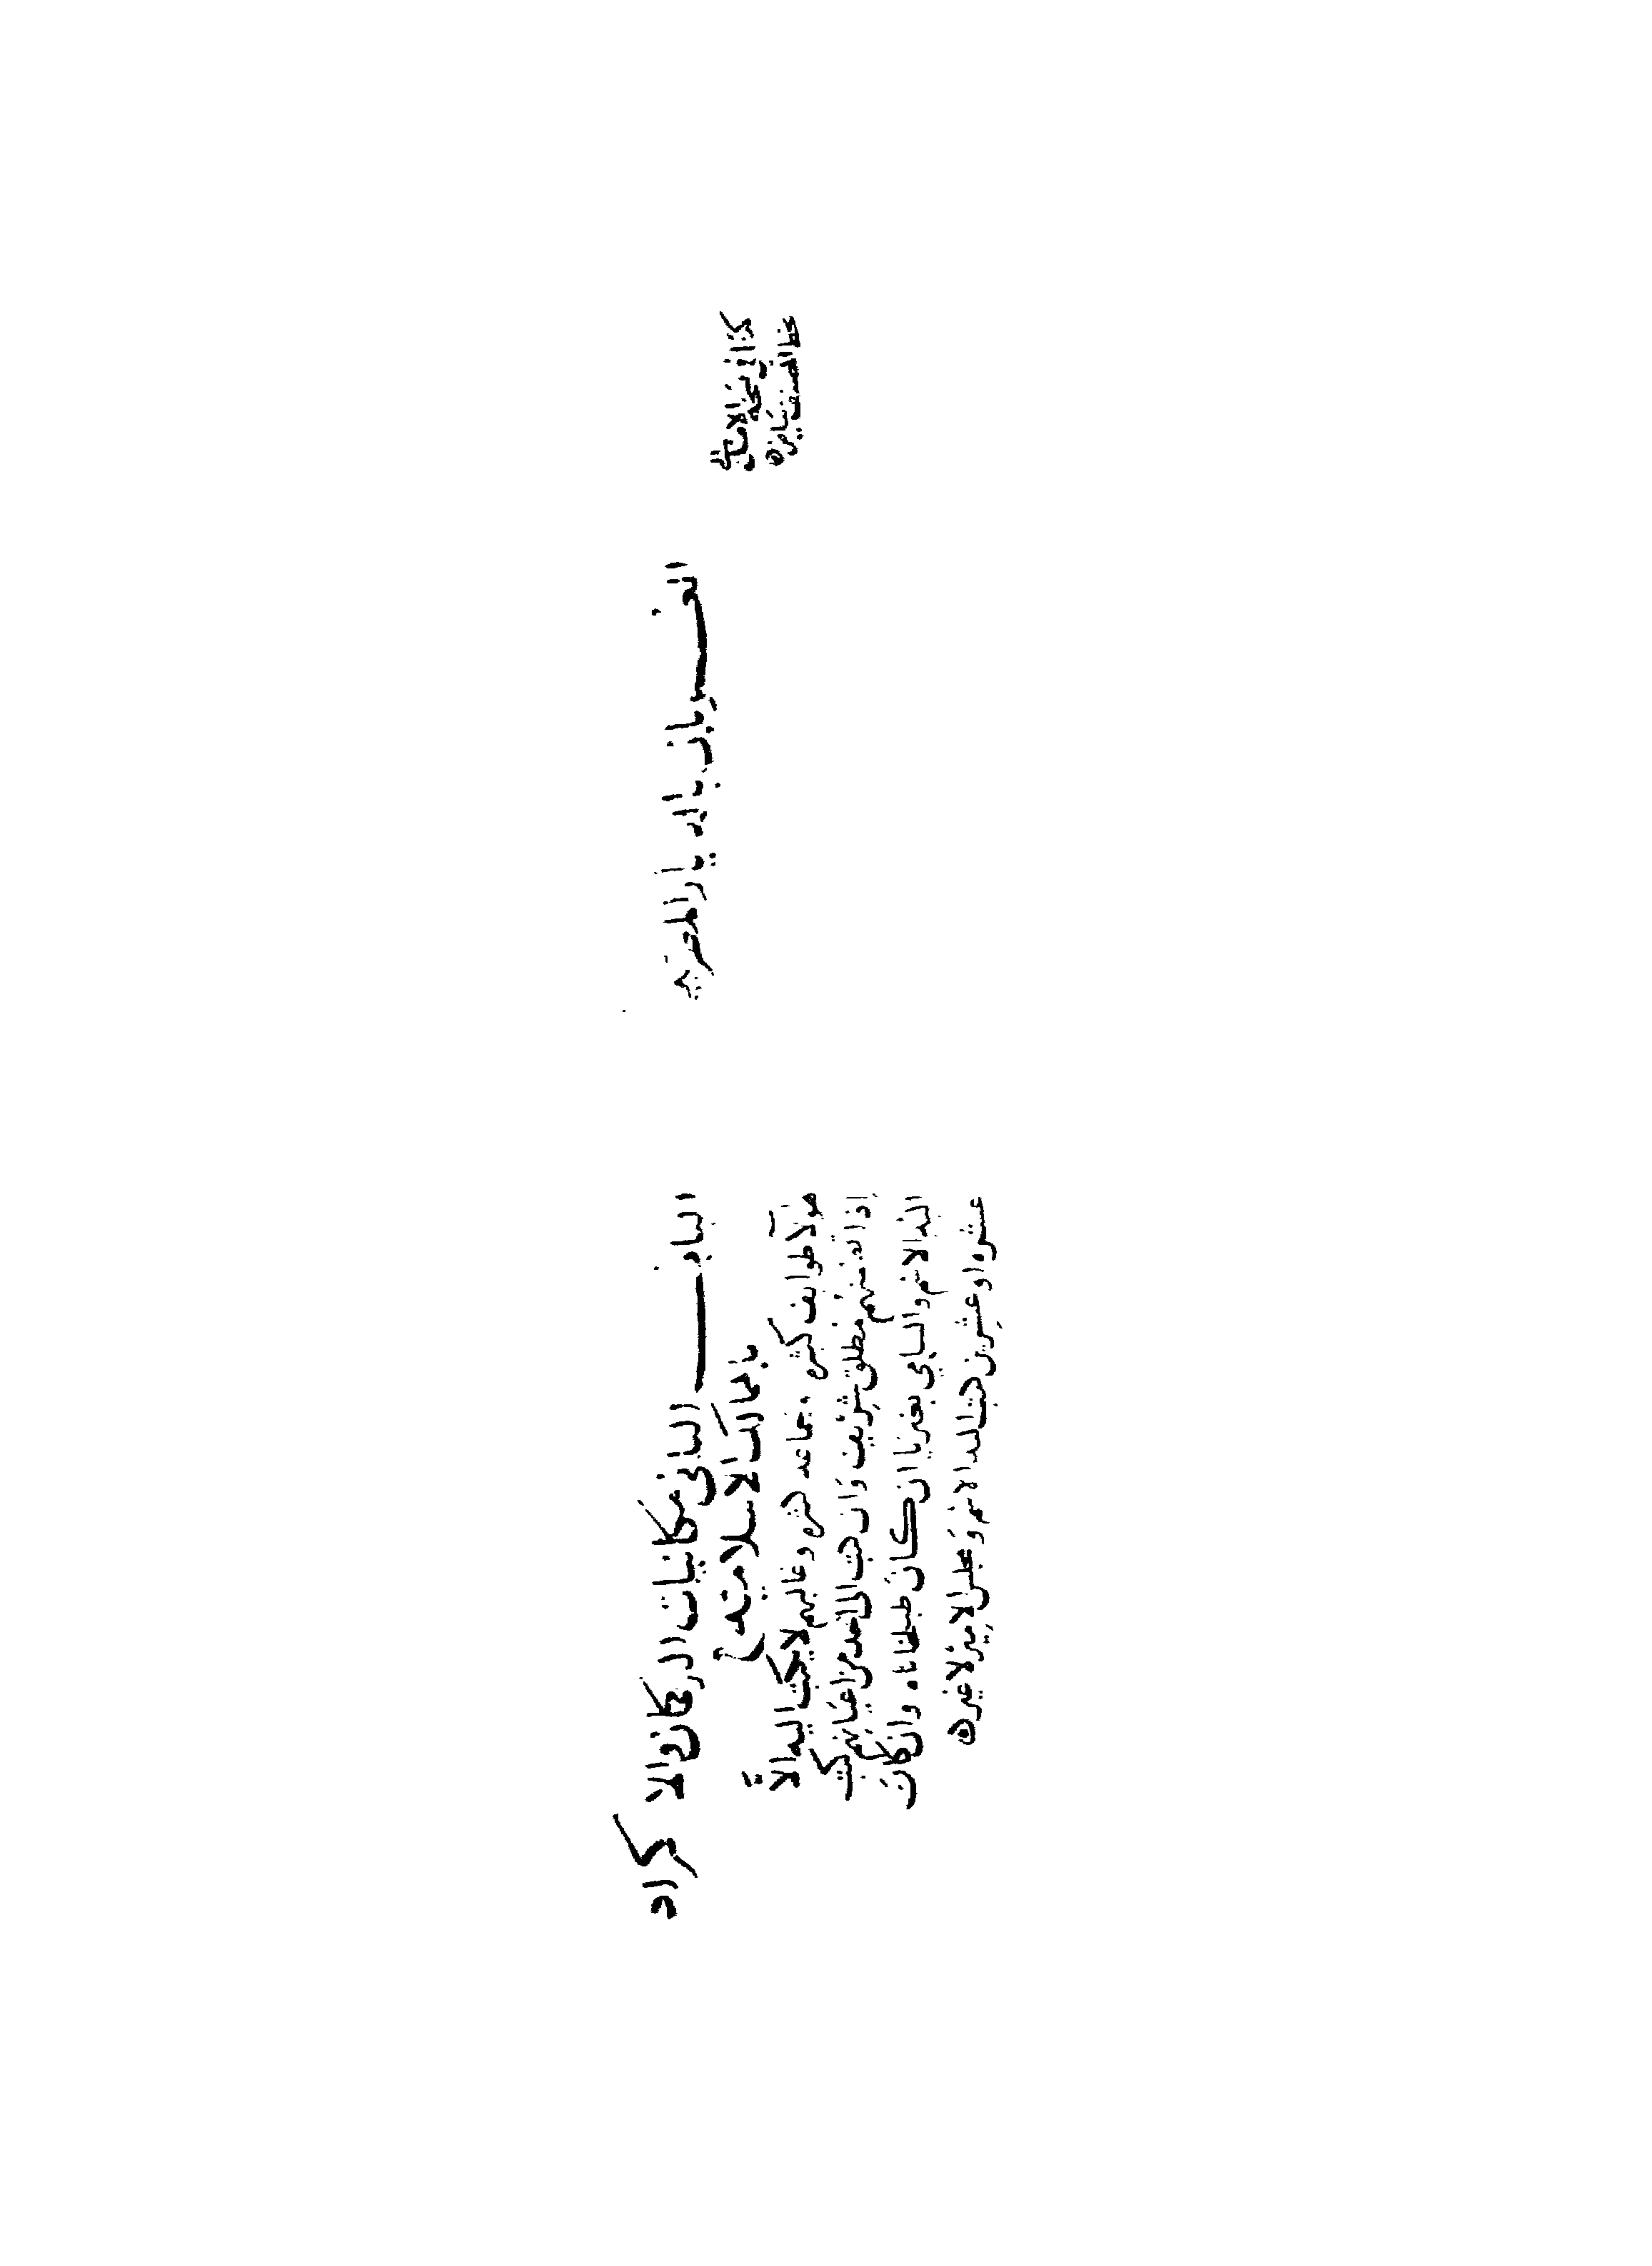 العربان بالديار المصرية
كذا في نسخة الاصل
بخط المصنف بياض ه
الباب الثاني مكاتبات التركمان والاكراد
بالممالك الاسلامية
هولاء طوايف كثيرة وجماعه كثيره وغالبهم لا يكتب اليه الا
اذا كتب منهم مطلق شريف وان كتب الى احد من اعيانهم كتب
اليه الاسم والسامي بغير يا ان كان طبلخاناه وان كان
عشره او عشرين كتب اليه الاسم ومجلس الامير لا غير ه